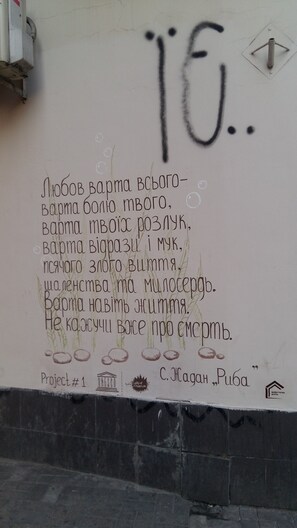 ЇЄ..
Любов варта всього–
варта болю твого,
варта твоїх розлук,
варта відрази і мук,
псячого злого виття,
шаленства та милосердь.
Варта навіть життя.
Не кажучи вже про смерть.
Project #1
С. Жадан „Риба"